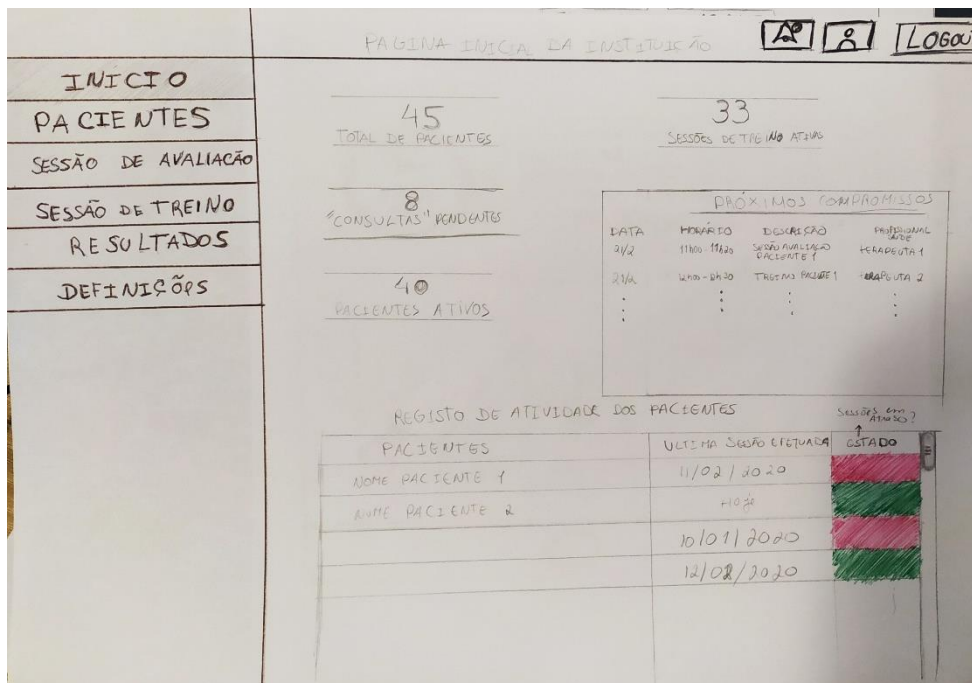 PAGINA INICIAL DA INSTITUIÇÃO
LOGOU
INICIO
PACIENTES
SESSÃO DE AVALIAÇÃO
SESSÃO DE TREINO
RESULTADOS
DEFINIÇÕES
45
TOTAL DE PACIENTES
33
SESSÕES DE TREINO ATIVAS
8
"CONSULTAS" PENDENTES
40
PACIENTES ATIVOS
PRÓXIMOS COMPROMISSOS
DATA HORÁRIO DESCRIÇÃO PROFISSIONAL SAÚDE
21/2 11h00-11h20 SESSÃO AVALIAÇÃO PACIENTE 1 TERAPEUTA 1
TREINO PACIENTE 1 TERAPEUTA 2
REGISTO DE ATIVIDADE DOS PACIENTES
SESSÕES em ATRASO?
PACIENTES ULTIMA SESSÃO EFETUADA ESTADO
NOME PACIENTE 1 11/02/2020
NOME PACIENTE 2 Hoje
10/01/2020
12/02/2020